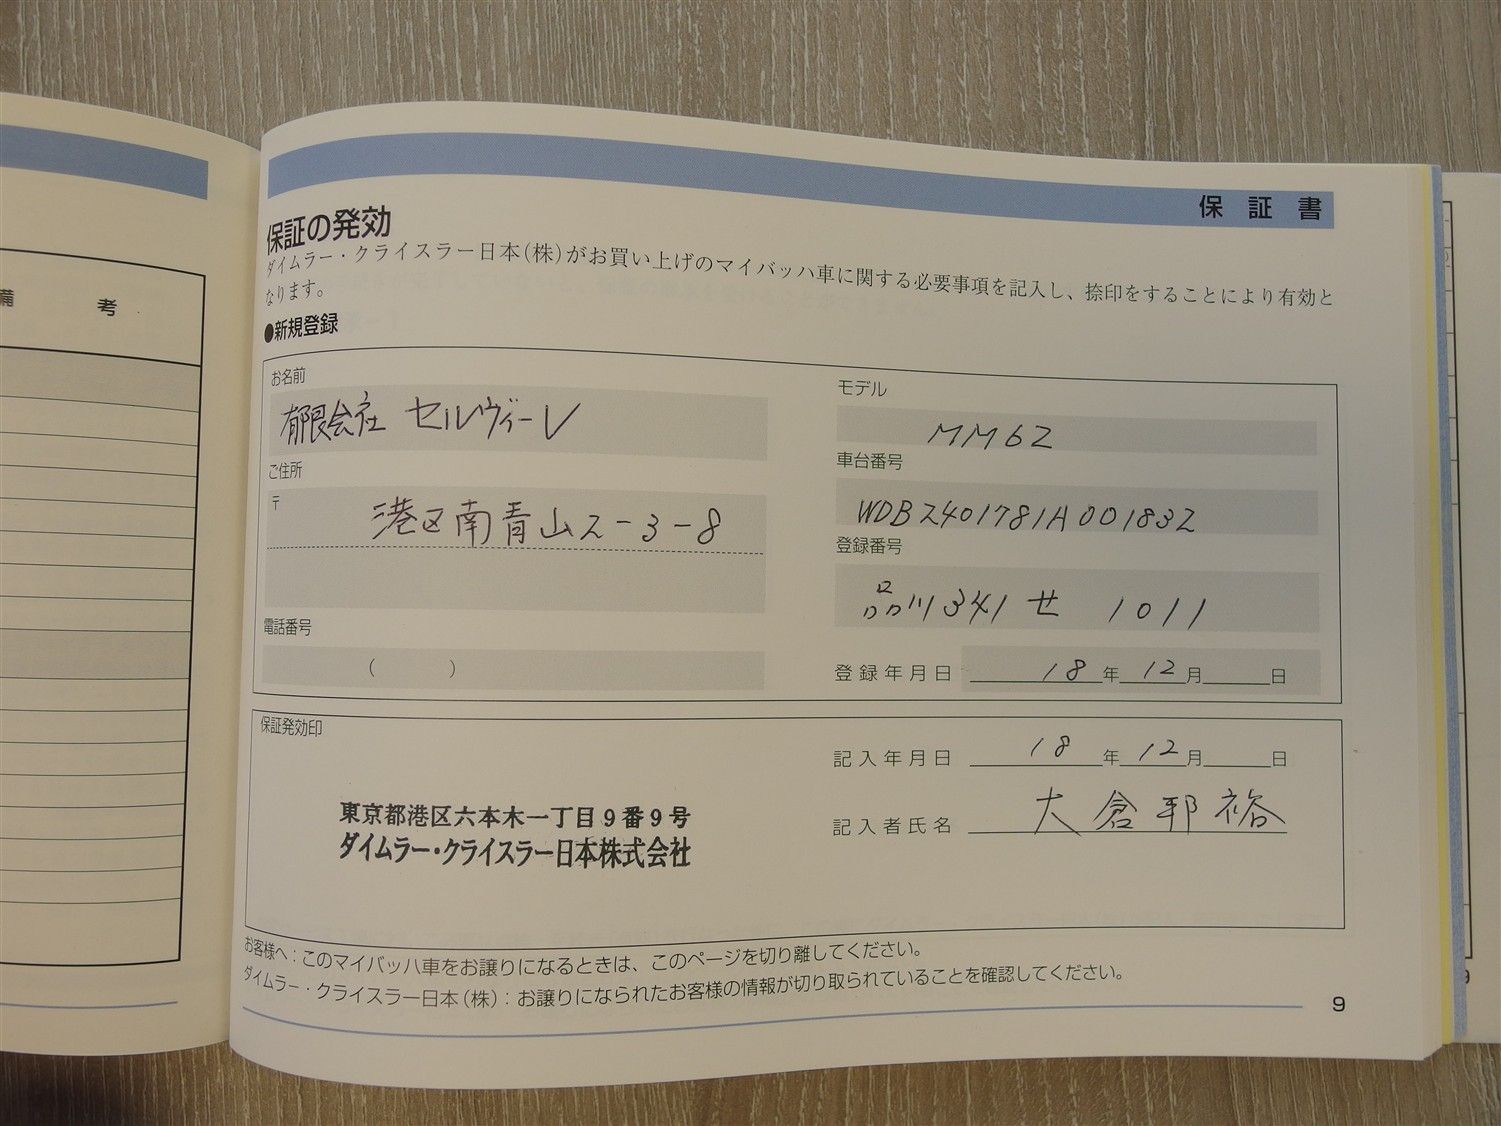 備 考
保 証 書
保証の発効
ダイムラー・クライスラー日本(株)がお買い上げのマイバッハ車に関する必要事項を記入し、捺印をすることにより有効と
なります。
●新規登録
お名前
有限会社 セルヴィーレ
ご住所
〒
港区南青山2-3-8
電話番号
( )
モデル
MM62
車台番号
WDB2401781A001832
登録番号
品川341せ 1011
登録年月日 18年12月 日
保証発効印
東京都港区六本木一丁目9番9号
ダイムラー・クライスラー日本株式会社
記入年月日 18年12月 日
記入者氏名 大倉邦裕
お客様へ：このマイバッハ車をお譲りになるときは、このページを切り離してください。
ダイムラー・クライスラー日本(株)：お譲りになられたお客様の情報が切り取られていることを確認してください。
9